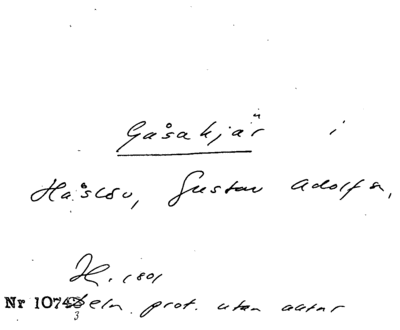 Gåsakjär i
Håslöv, Gustav Adolfs,
H. 1801
Nr 1073 eln. prot. utan kartor